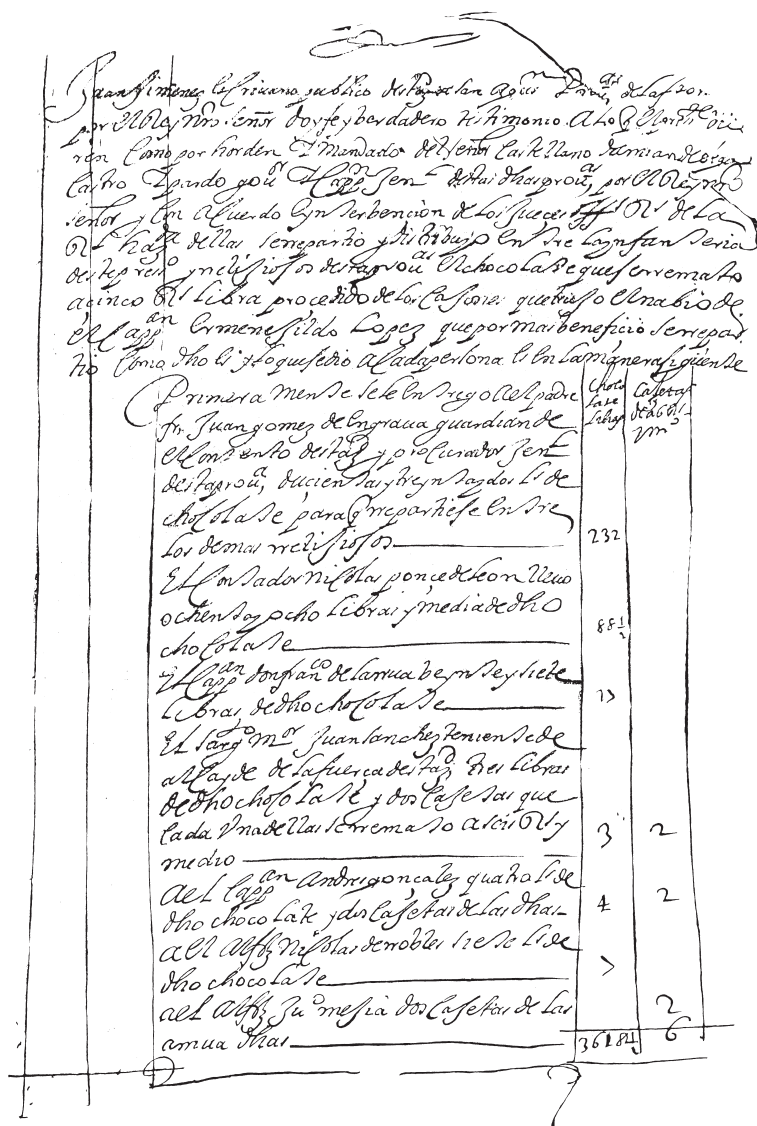 Juan Ximenez escrivano publico desta de san Agus.n Prou.as de la flor.
por el Rey nro señor doy fe y berdadero testimonio a los q el presente vie
ren como por horden y mandado del señor castellano damian de
castro y pardo gou.or y cap.n Jen.l destas dhas prou.as por el Rey nro
señor y con acuerdo e ynterbencion de los jueces ofi Rs de la
Rl haz.da della se rrepartio y distribuyo entre la ynfanteria
deste presi.o y rrelijiosos desta prou.a el chocolate que se rremato
a cinco Rs libra procedido de los cajones que trajo el nabio de
el Capp.an Ermenejildo Lopez que por mas beneficio se rrepar
tio como dho es y lo que se dio a cada persona es en la manera siguiente
Primera mente se le entrego a el padre
fr. Juan gomez de engraua guardian de
el conbento desta y procurador Jen.l
desta prou.a ducientas y treynta y dos ls de
chocolate para q rrepartiese entre
los demas rrelijiosos 232
El Contador nicolas ponce de leon lleuo
ochenta y ocho libras y media de dho
chocolate 88 1/2
El Capp.an don fran.co de la rrua beynte y siete
libras de dho chocolate
El sarg.to m.or Juan sanchez teniente de
alcayde de la fuerça desta tres libras
de dho chocolate y dos cajetas que
cada una dellas se rremato a seis Rs y
medio 3 2
a el Capp.an Andres gonçalez quatro ls de
dho chocolate y dos cajetas de las dhas 4 2
a el Alfz nicolas de rrobles siete ls de
dho chocolate 7
a el Alfz Ju.o mesia dos cajetas de las 2
dhas 6
choco
late
libras
Cajetas